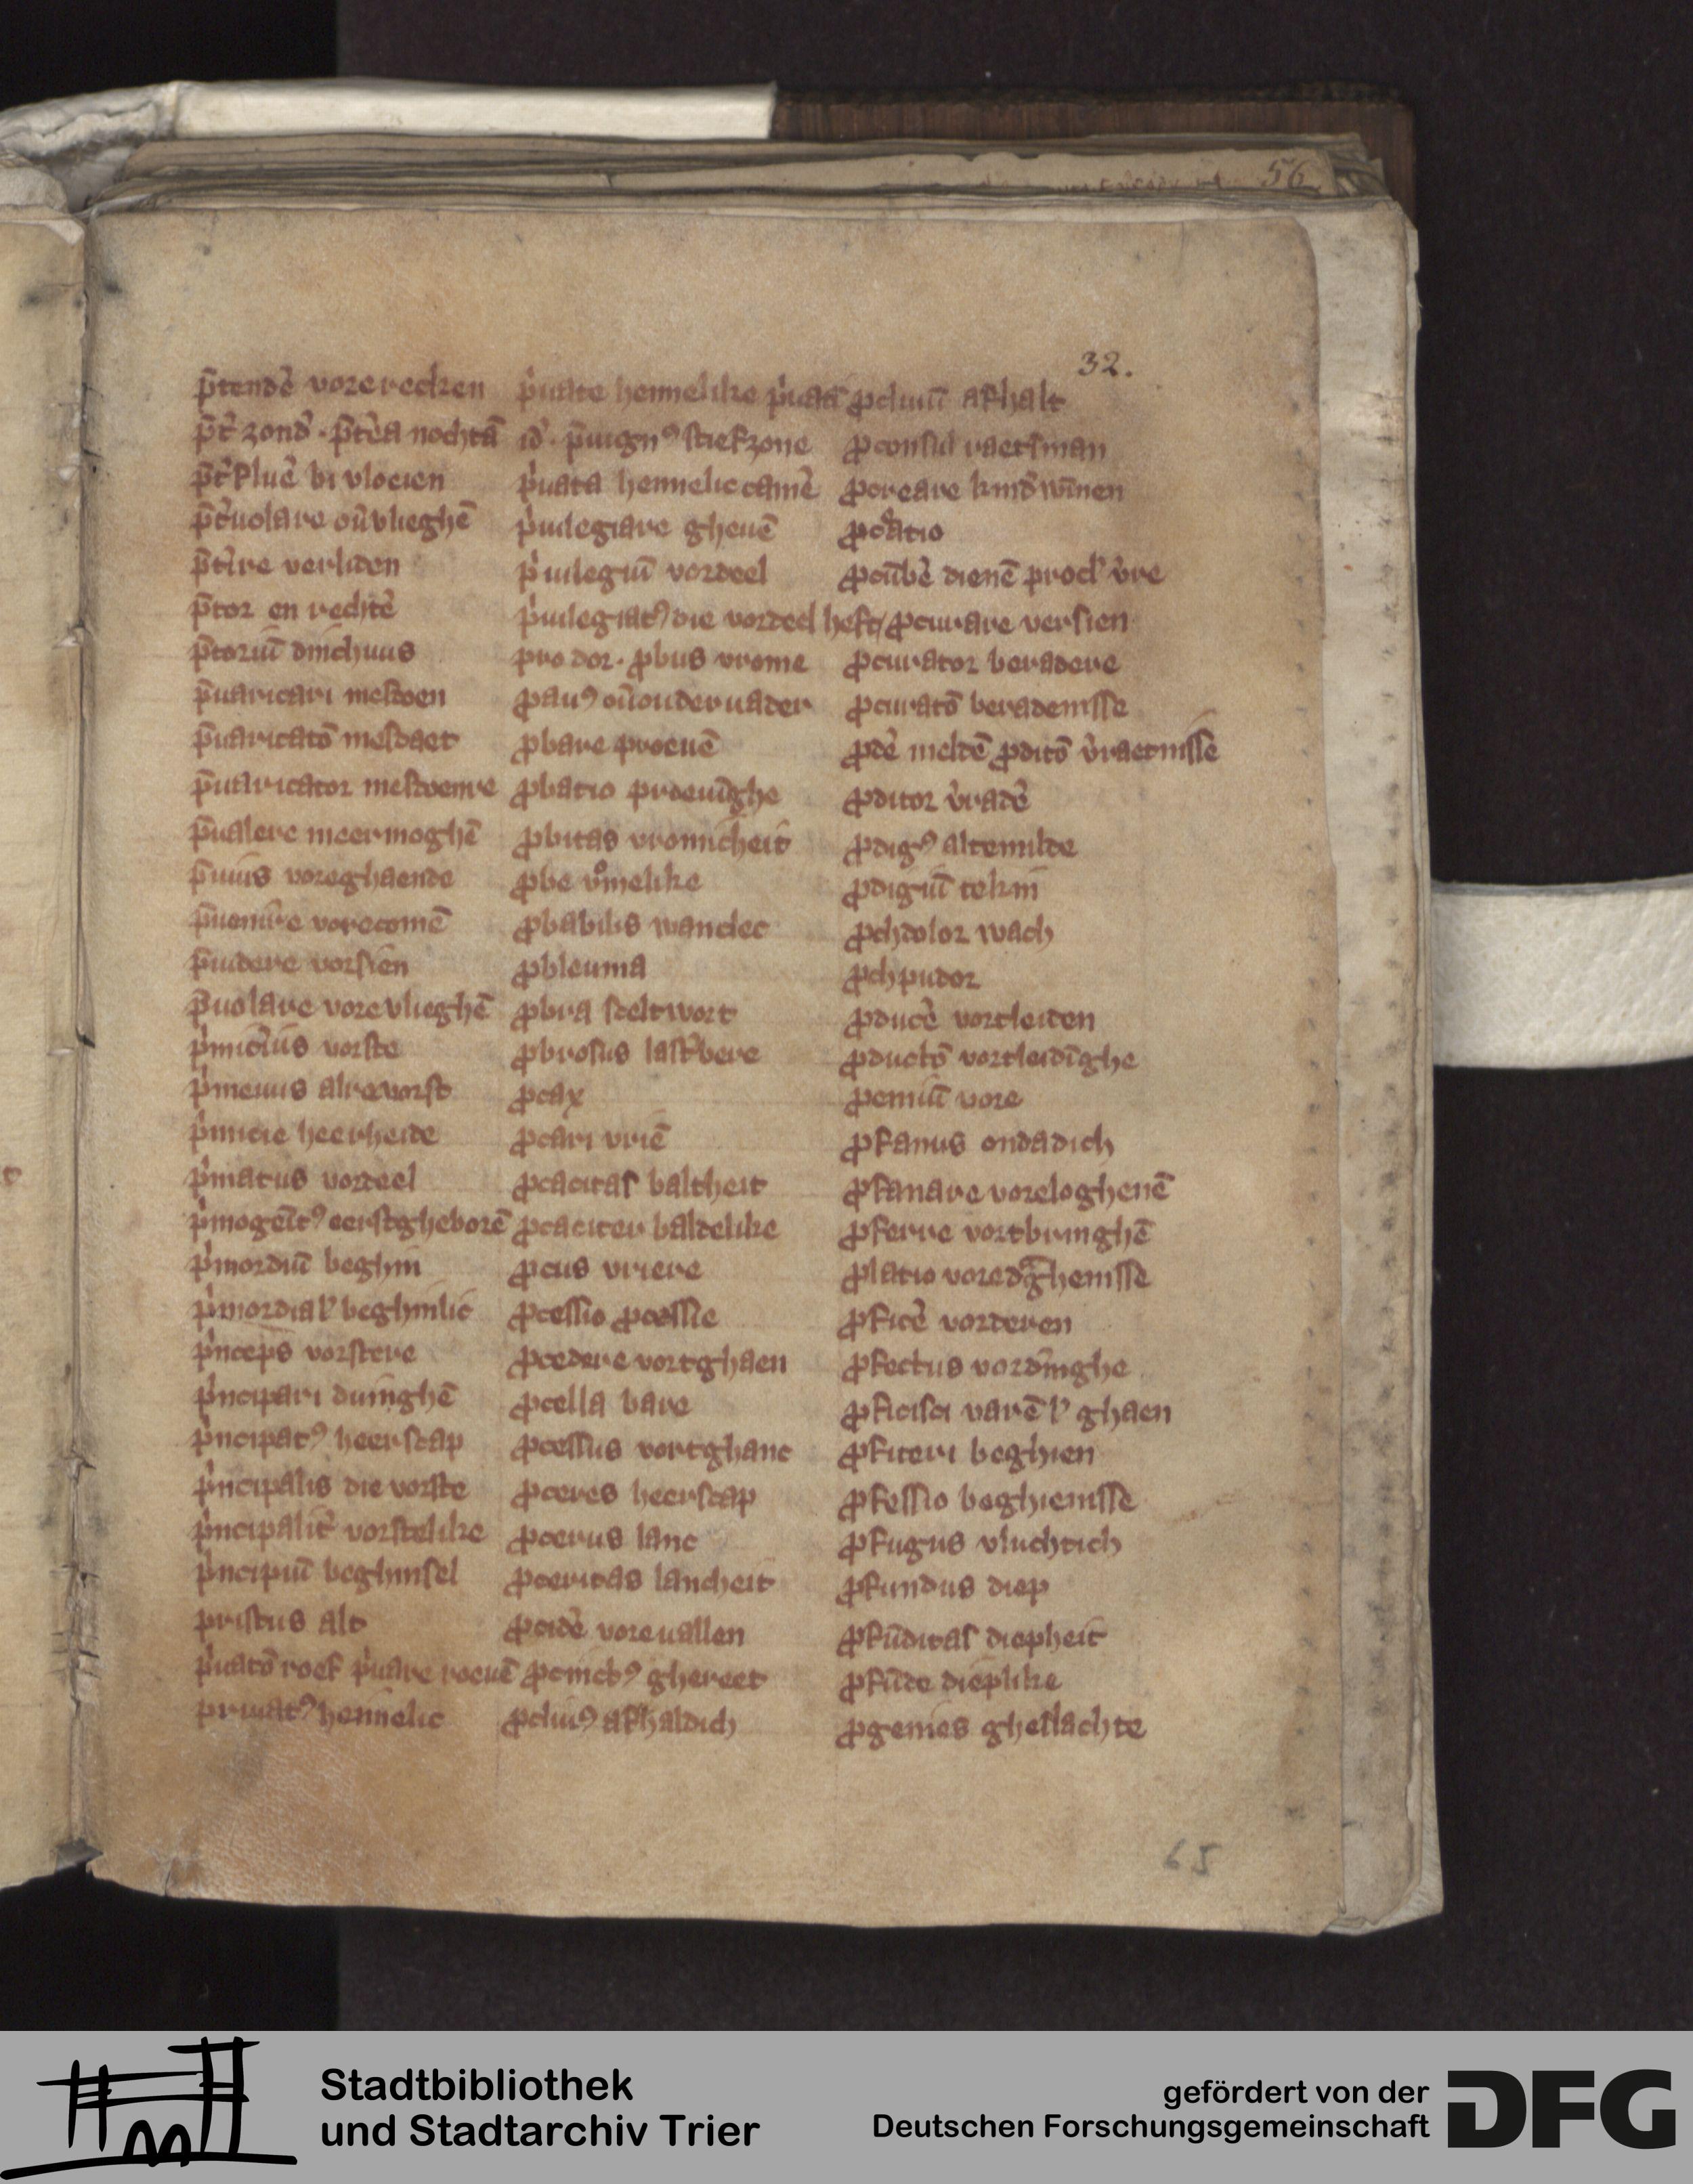 56
32.
p̄tendẽ vorerecken
p̄t᷑ zond᷑ · p̄t᷑ea nochtā
p̄t᷑fluẽ bi vloeien
p̄t᷑uolare ou᷑vlieghē
p̄t᷑ire verliden
p̄tor en rechtẽ
p̄toriū dinchuus
p̄uaricari mesdoen
p̄uaricatō mesdaet
p̄uaricator mesdoenre
p̄ualere meermoghē
p̄uius voreghaende
p̄uenire vorecomē
p̄uidere vorsien
p̄uolare vorevlieghē
p̍mit᷑ius vorste
p̍meuus alrevorst
p̍micie heerheide
p̍matus vordeel
p̍mogēitꝰ eerstgheborē
p̍mordiū beghin
p̍mordial᷑ beghinlic
p̍nceps vorstere
p̍ncipari duinghē
p̍ncipatꝰ heerscap
p̍ncipalis die vorste
p̍ncipalit᷑ vorstelike
p̍ncipiū beghinsel
priscus alt
p̍uatō roef p̍uare roeuē
priuatꝰ heimelic
p̍uate hemelike p̍uatī
id᷑ · p̄uignꝰ stiefzone
p̍uata hemelic camẽ
p̍uilegiare gheuē
p̍uilegiū vordeel
p̍uilegiatꝰ die vordeel heft
pro dor · ꝓbus vrome
ꝓauꝰ ou᷑oudervader
ꝓbare proeuē
ꝓbatio proeuīghe
ꝓbitas vromicheit
ꝓbe vͦmelike
ꝓbabilis wanclec
ꝓbleuma
ꝓbra sceltwort
ꝓbrosus last᷑bere
ꝓcax
ꝓcari vriē
ꝓcacitas baltheit
ꝓcaciter baldelike
ꝓcus vriere
ꝓcessio ꝓcessie
ꝓcedere vortghaen
ꝓcella bare
ꝓcessus vortghanc
ꝓceres heerscap
ꝓcerus lanc
ꝓceritas lancheit
ꝓcidẽ vorevallen
ꝓcinctꝰ ghereet
ꝓcliuꝰ afhaldich
ꝓcliuiū afhalt
ꝓconsul raetsman
ꝓcreare kind᷑ wīnen
ꝓcᵃatio
ꝓcūbẽ dienē procl᷑ v᷑re
ꝓcurare versien
ꝓcurator beradere
ꝓcuratō berademisse
ꝓdẽ meldē ꝓditō v᷑raetnisse
ꝓditor v᷑radẽ
ꝓdigꝰ altemilde
ꝓdigiū tekin
ꝓchdolor wach
ꝓchpudor
ꝓducẽ vortleiden
ꝓductō vortleidīghe
ꝓemiū vore
ꝓfanus ondadich
ꝓfanare voreloghenē
ꝓferre vortbringhē
ꝓlatio voredᵃghenisse
ꝓficẽ vorderen
ꝓfectus vordīnghe
ꝓficisci varē l᷑ ghaen
ꝓfiteri beghien
ꝓfessio beghienisse
ꝓfugus vluchtich
ꝓfundus diep
ꝓfūditas diepheit
ꝓfūde dieplike
ꝓgenies gheslachte
65
Stadtbibliothek
und Stadtarchiv Trier
gefördert von der
Deutschen Forschungsgemeinschaft
DFG